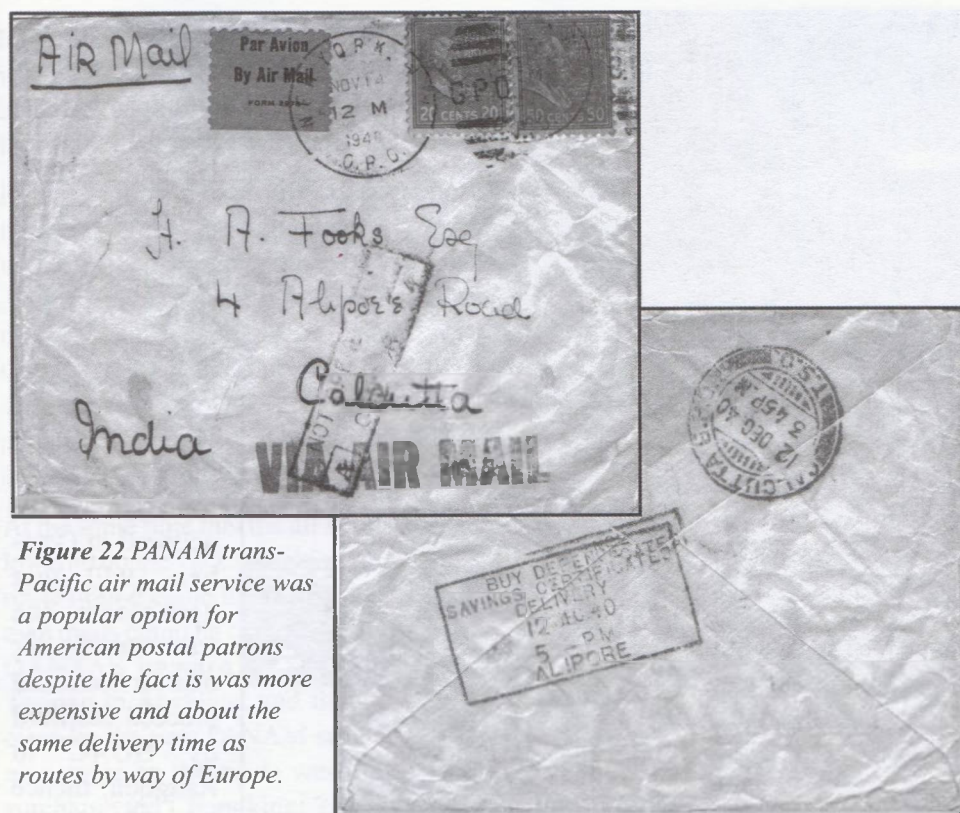 AIR Mail
Par Avion
By Air Mail
YORK, N.
NOV 14
12 M
1940
G.P.O.
GPO
20 CENTS 20
50 CENTS 50
H. A. Fooks Esq
4 Alipore Road
Calcutta
India
NOT
VIA AIR MAIL
CALCUTTA
12 DEC 40
3 45P M
BUY DEFENCE
SAVINGS CERTIFICATES
DELIVERY
5 PM
ALIPORE
Figure 22 PANAM trans-
Pacific air mail service was
a popular option for
American postal patrons
despite the fact is was more
expensive and about the
same delivery time as
routes by way of Europe.